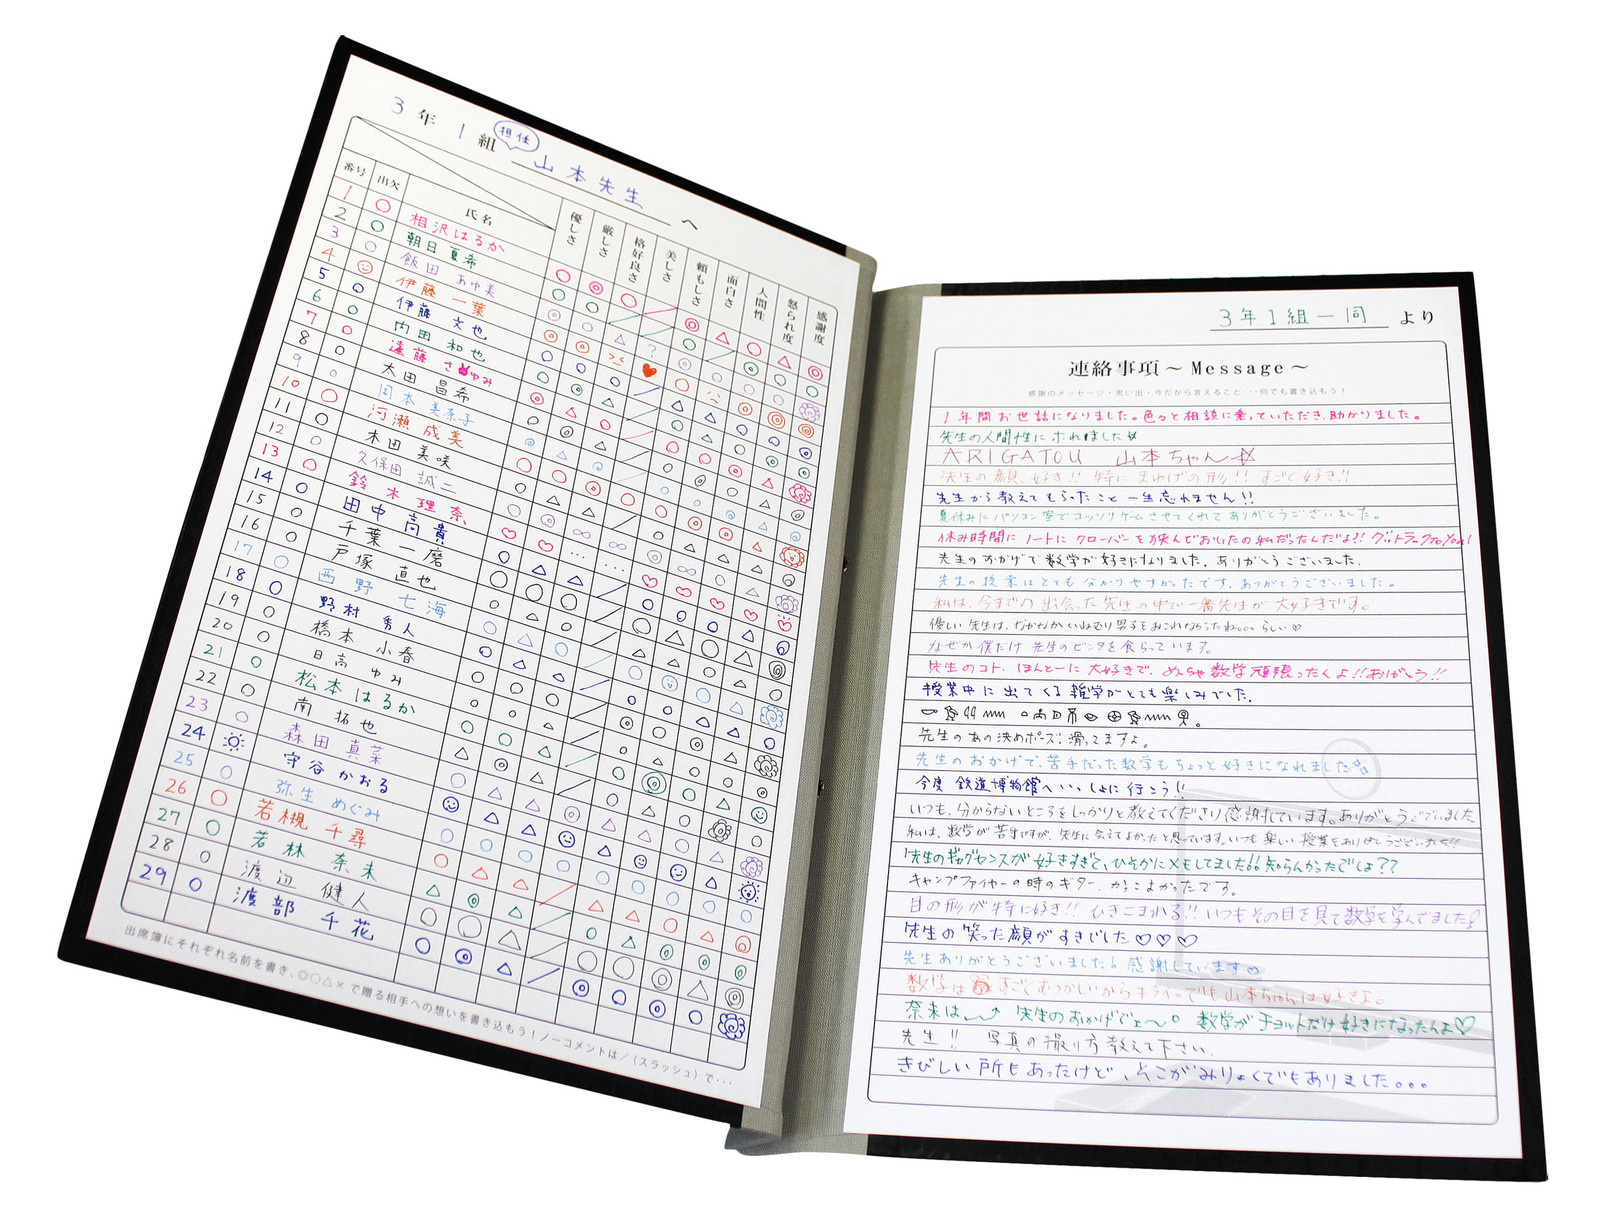 3年 1組 担任 山本先生 へ
番号 出欠 氏名 優しさ 厳しさ 格好良さ 美しさ 頼もしさ 面白さ 人間性 怒られ度 感謝度
1 相沢はるか
2 朝日夏希
3 飯田 あゆ美
4 伊藤 一葉
5 伊藤 文也
6 内田 和也
7 遠藤 さゆみ
8 太田 昌希
9 岡本 美奈子
10 河瀬 成美
11 木田 美咲
12 久保田 誠二
13 鈴木 理奈
14 田中 高貴
15 千葉 一磨
16 戸塚 直也
17 西野 七海
18 野村 秀人
19 橋本 小春
20 日高 ゆみ
21 松本 はるか
22 南 拓也
23 森田 真菜
24 守谷 かおる
25 弥生 めぐみ
26 若槻 千尋
27 若林 奈未
28 渡辺 健人
29 渡部 千花
出席簿にそれぞれ名前を書き、◎○△×で贈る相手への想いを書き込もう!ノーコメントは/(スラッシュ)で・・・
3年1組一同 より
連絡事項~Message~
感謝のメッセージ・思い出・今だから言えること・・・何でも書き込もう!
1年間お世話になりました。色々と相談に乗っていただき、助かりました。
先生の人間性にホれました
ARIGATOU 山本ちゃん☆
先生の顔、好き!! 特にまゆげの形!! すごく好き!!
先生から教えてもらったこと一生忘れません!!
夏休みにパソコン室でコッソリゲームさせてくれてありがとうございました。
休み時間にノートにクローバーを挟んでおいたの私だったんだよ!! グットラックTo You!
先生のおかげで数学が好きになりました。ありがとうございました。
先生の授業はとても分かりやすかったです。ありがとうございました。
私は、今までの出会った先生の中で一番先生が大好きです。
優しい先生は、なかなかいねむり男子をおこれなかったね。。。らしい♡
なぜか僕だけ先生のビンタを食らっています。
先生のコト、ほんとーに大好きで、めっちゃ数学頑張ったくよ!!ありがとう!!
授業中に出てくる雑学がとても楽しみでした。
先生のあの決めポーズ!滑ってますよ。
先生のおかげで、苦手だった数学もちょっと好きになれました
今度 鉄道博物館へいっしょに行こう!!
いつも、分からないところをしっかりと教えてくださり感謝しています。ありがとうございました
私は、数学が苦手ですが、先生に会えてよかったと思っています。いつも楽しい授業をありがとうございました!!
先生のギャグセンスが好きすぎて、ひそかにメモしてました!!知らんかったでしょ??
キャンプファイヤーの時のギター、かっこよかったです。
目の形が特に好き!! ひきこまれる!! いつもその目を見て数学を学んでました!
先生の笑った顔がすきでした♡♡♡
先生ありがとうございました! 感謝しています
数学はすごくむつかしいからキライ。でも山本ちゃんは好きよ。
奈未は〜 先生のおかげでェ〜。 数学がチョットだけ好きになったんよ♡
先生!! 写真の撮り方教えて下さい。
きびしい所もあったけど、そこがみりょくでもありました。。。